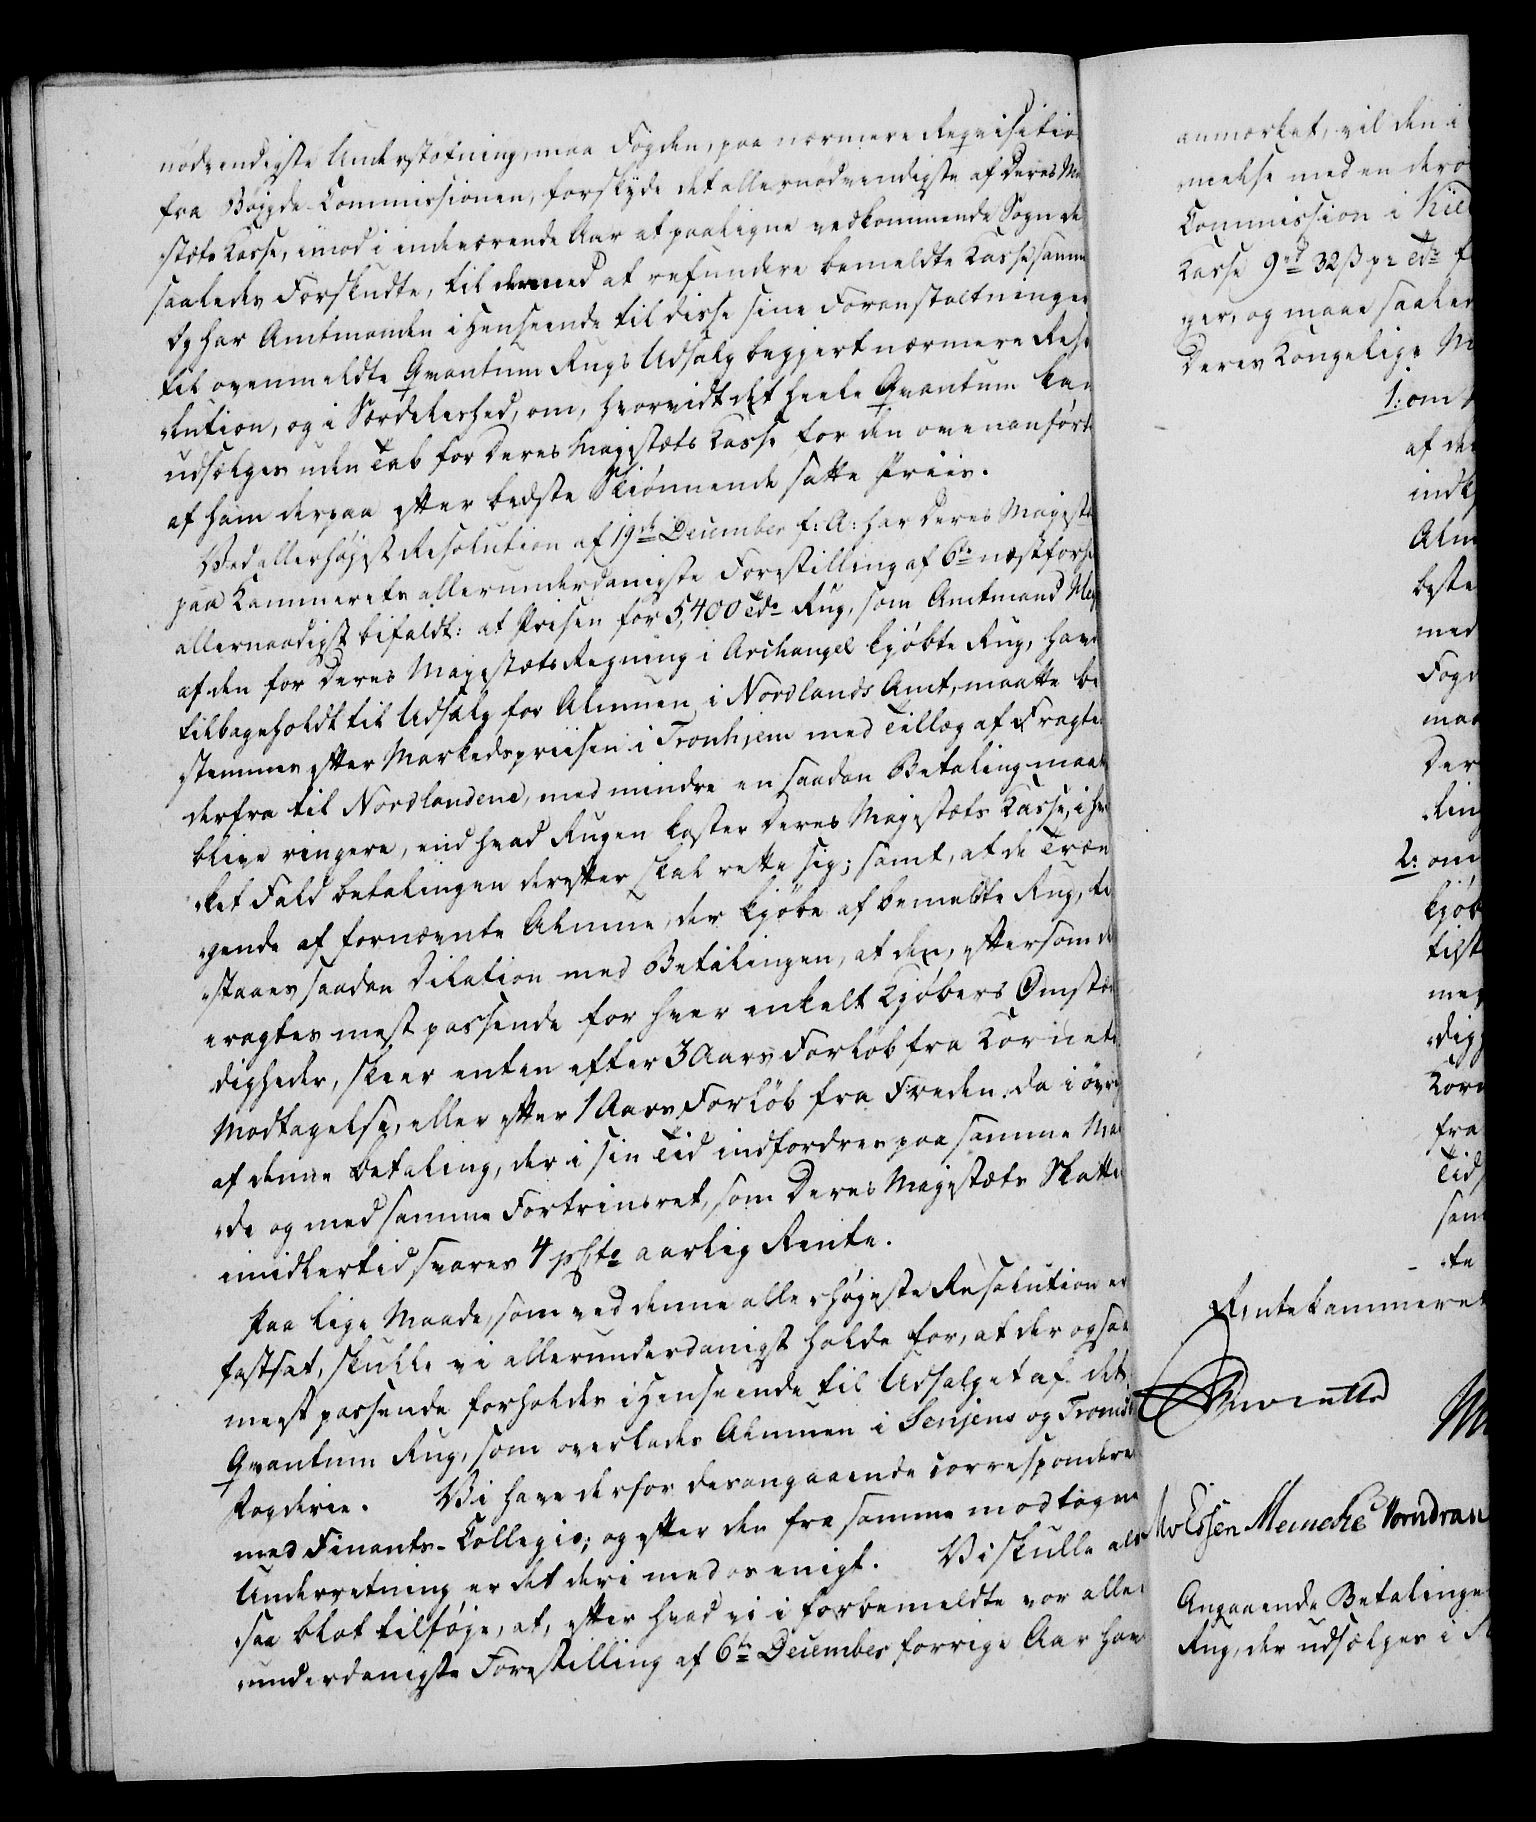 nødvendigste Understøtning, maa Fogden, paa nærmere Reqvisitio
fra Bøigde-Commissionen, forskyde det allernødvendigste af Deres Ma
stæts Kasse, imod i indeværende Aar at paaligne vedkommende Sogn de
saaledes Forskudte, til dermed at refundere bemeldte Kasse samme
Og har Amtmanden i Henseende til disse sine Foranstaltninger
til ovenmeldte Qvantum Rugs Udsalg begjert nærmere Reso
lution, og i Særdeleshed, om, hvorvidt det heele Qvantum kan
udsælges uden Tab for Deres Majestæts Kasse for den ovenanførte
af ham derpaa efter bedste Skiønnende satte Priis.
Ved allerhøjest Resolution af 19de December f: A: har Deres Majestæ
paa Kammerets allerunderdanigste Forestilling af 6te næstforhe
allernaadigst bifaldt: at Prisen for 5,400 Tdr Rug, som Amtmand
af den for Deres Majestæts Regning i Archangel kjøbte Rug, have
tilbageholdt til Udsalg for Almuen i Nordlands Amt, maatte be
stemmes efter Markedspriisen i Tronhjem med Tillæg af Fragten
derfra til Nordlandene, med mindre en saadan Betaling maatte
blive ringere, end hvad Rugen koster Deres Majestæts Kasse, i hvi
ket Fald betalingen derefter skal rette sig; samt, at de Træn
gende af fornævnte Almue, der kjøbe af bemeldte Rug, til
staaes saadan Dilation med Betalingen, at den, eftersom de
eragtes mest passende for hver enkelt Kjøbers Omstæn
digheder, skeer enten efter 3 Aars Forløb fra Kornets
Modtagelse, eller efter 1 Aars Forløb fra Freden, da i øvrig
af denne betaling, der i sin Tid indfordres paa samme Maa
de og med samme Fortrinsret, som Deres Majestæts Skatter
imidlertid svares 4 pCto aarlig Rente.
Paa lige Maade, som ved denne allerhøjeste Resolution er
fastsat, skulle vi allerunderdanigst holde for, at der ogsaa
meest passende forholdes i Henseende til Udsalget af det
Qvantum Rug, som overlades Almuen i Senjens og Tromsø
Fogderie. Vi have derfor desangaaende corresponderet
med Finants-Collegie; og efter den fra samme modtagne
Underretning er det deri med os enigt. Vi skulle alt
saa blot tilføje, at, efter hvad vi i forbemeldte vor aller
underdanigste Forestilling af 6te December forrige Aar have
anmærket, vil den i
melse med en dero
Commission i
Kasse 9 rd 32 ß pr Tdr
ger, og maae saaled
Deres Kongelige M
1: om
af de
indk
Alm
beste
med
Fogd
maa
Der
ling
2: om
kjøb
tilst
me
dig
Korn
fra
Tid
sam
te
Rentekammeret
M
Essen Meincke Vorndran
Angaaende Betalinge
Rug, der udsælges i